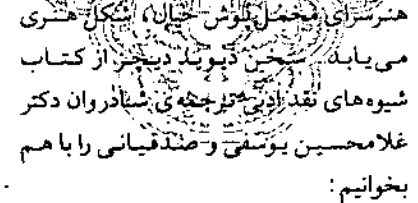 هنرسرای مخمل‌پوش خیال، شکل هنری
می‌یابد. سخن دیوید دیچز از کتاب
شیوه‌های نقد ادبی ترجمه‌ی شادروان دکتر
غلامحسین یوسفی و صدقیانی را با هم
بخوانیم: